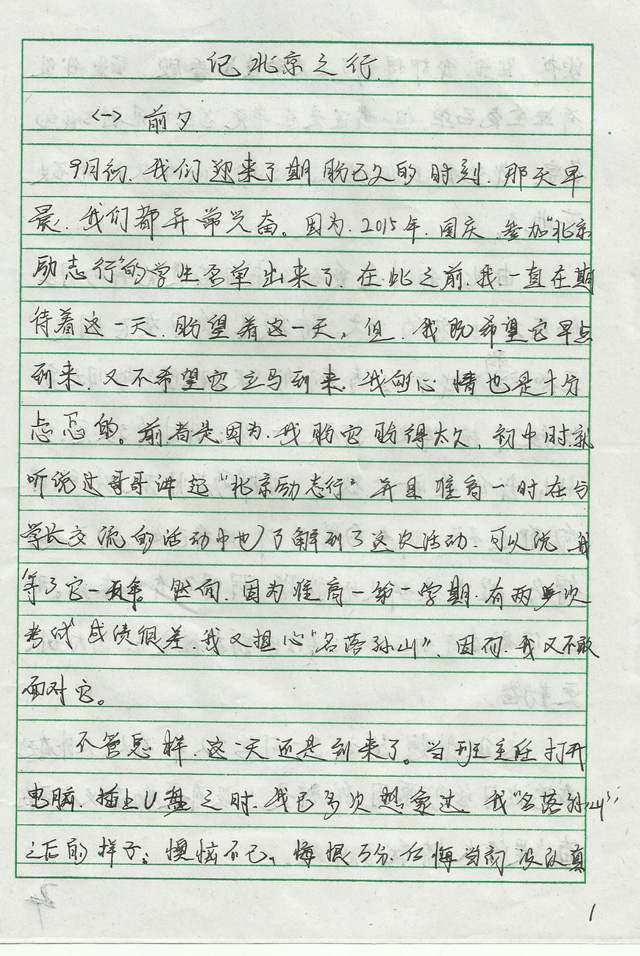 记北京之行
<一> 前夕
9月初，我们迎来了期盼已久的时刻，那天早
晨，我们都异常兴奋。因为，2015年，国庆，参加“北京
励志行”的学生名单出来了。在此之前，我一直在期
待着这一天，盼望着这一天，但，我既希望它早点
到来，又不希望它立马到来，我的心情也是十分
忐忑的。前者是因为，我盼它盼得太久，初中时就
听说过哥哥讲起“北京励志行”并且准高一时在与
学长交流的活动中也了解到了这次活动，可以说我
等了它一年。然而，因为准高一第一学期，有两次
考试成绩很差，我又担心“名落孙山”，因而，我又不敢
面对它。
不管怎样，这一天还是到来了。当班主任打开
电脑，插上U盘之时，我已多次想象过，我“名落孙山”
之后的样子：懊恼不已，悔恨万分，后悔当初没认真
1